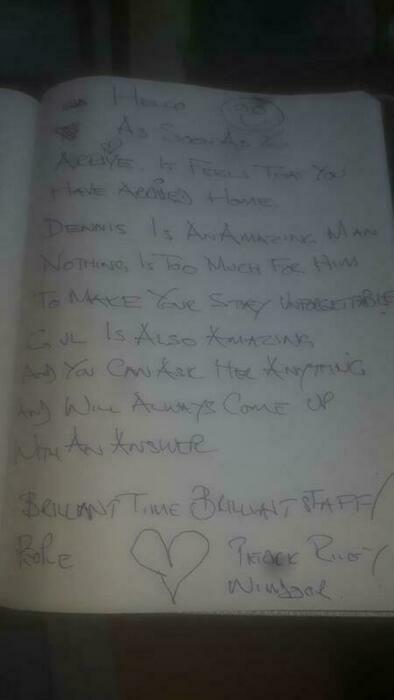 Hello
As Soon As
Arrive. It Feels That You
Have Arrived Home.
Dennis Is An Amazing Man
Nothing Is Too Much For Him
To Make Your Stay Unforgettable
Gul Is Also Amazing
And You Can Ask Her Anything
And Will Always Come Up
With An Answer
Brilliant Time Brilliant Staff/
People
Windsor.